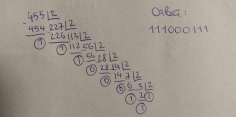 455 | 2 Ответ:
- 454 227 | 2 111000111
1 226 113 | 2
1 112 56 | 2
1 54 28 | 2
0 28 14 | 2
0 14 7 | 2
0 6 3 | 2
1 2 1
1